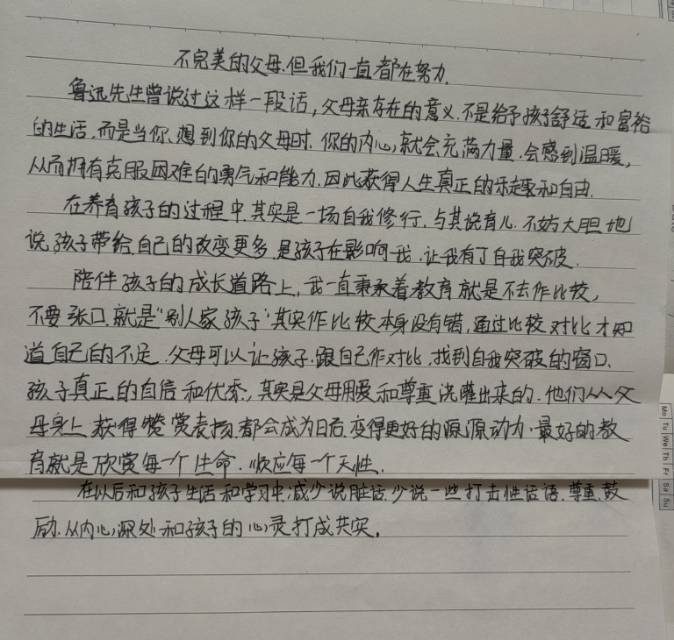 不完美的父母.但我们一直都在努力.
鲁迅先生曾说过这样一段话,父母亲存在的意义.不是给予孩子舒适和富裕
的生活.而是当你.想到你的父母时.你的内心,就会充满力量.会感到温暖,
从而拥有克服困难的勇气和能力.因此获得人生真正的乐趣和自由.
在养育孩子的过程中.其实是一场自我修行.与其说育儿.不妨大胆地
说孩子带给自己的改变更多.是孩子在影响我.让我有了自我突破.
陪伴孩子的成长道路上,我一直秉承着教育就是不去作比较,
不要张口.就是“别人家孩子”其实作比较本身没有错,通过比较对比才知
道自己的不足.父母可以让孩子.跟自己作对比,找到自我突破的窗口.
孩子真正的自信和优秀,其实是父母用爱和尊重浇灌出来的.他们从父
母身上获得赞赏表扬.都会成为日后.变得更好的源源动力.最好的教
育就是欣赏每一个生命.顺应每一个天性.
在以后和孩子生活和学习中.减少说脏话.少说一些打击性话语.尊重.鼓
励.从内心深处和孩子的心灵打成共实.
Mo Tu We Th Fr Sa Su